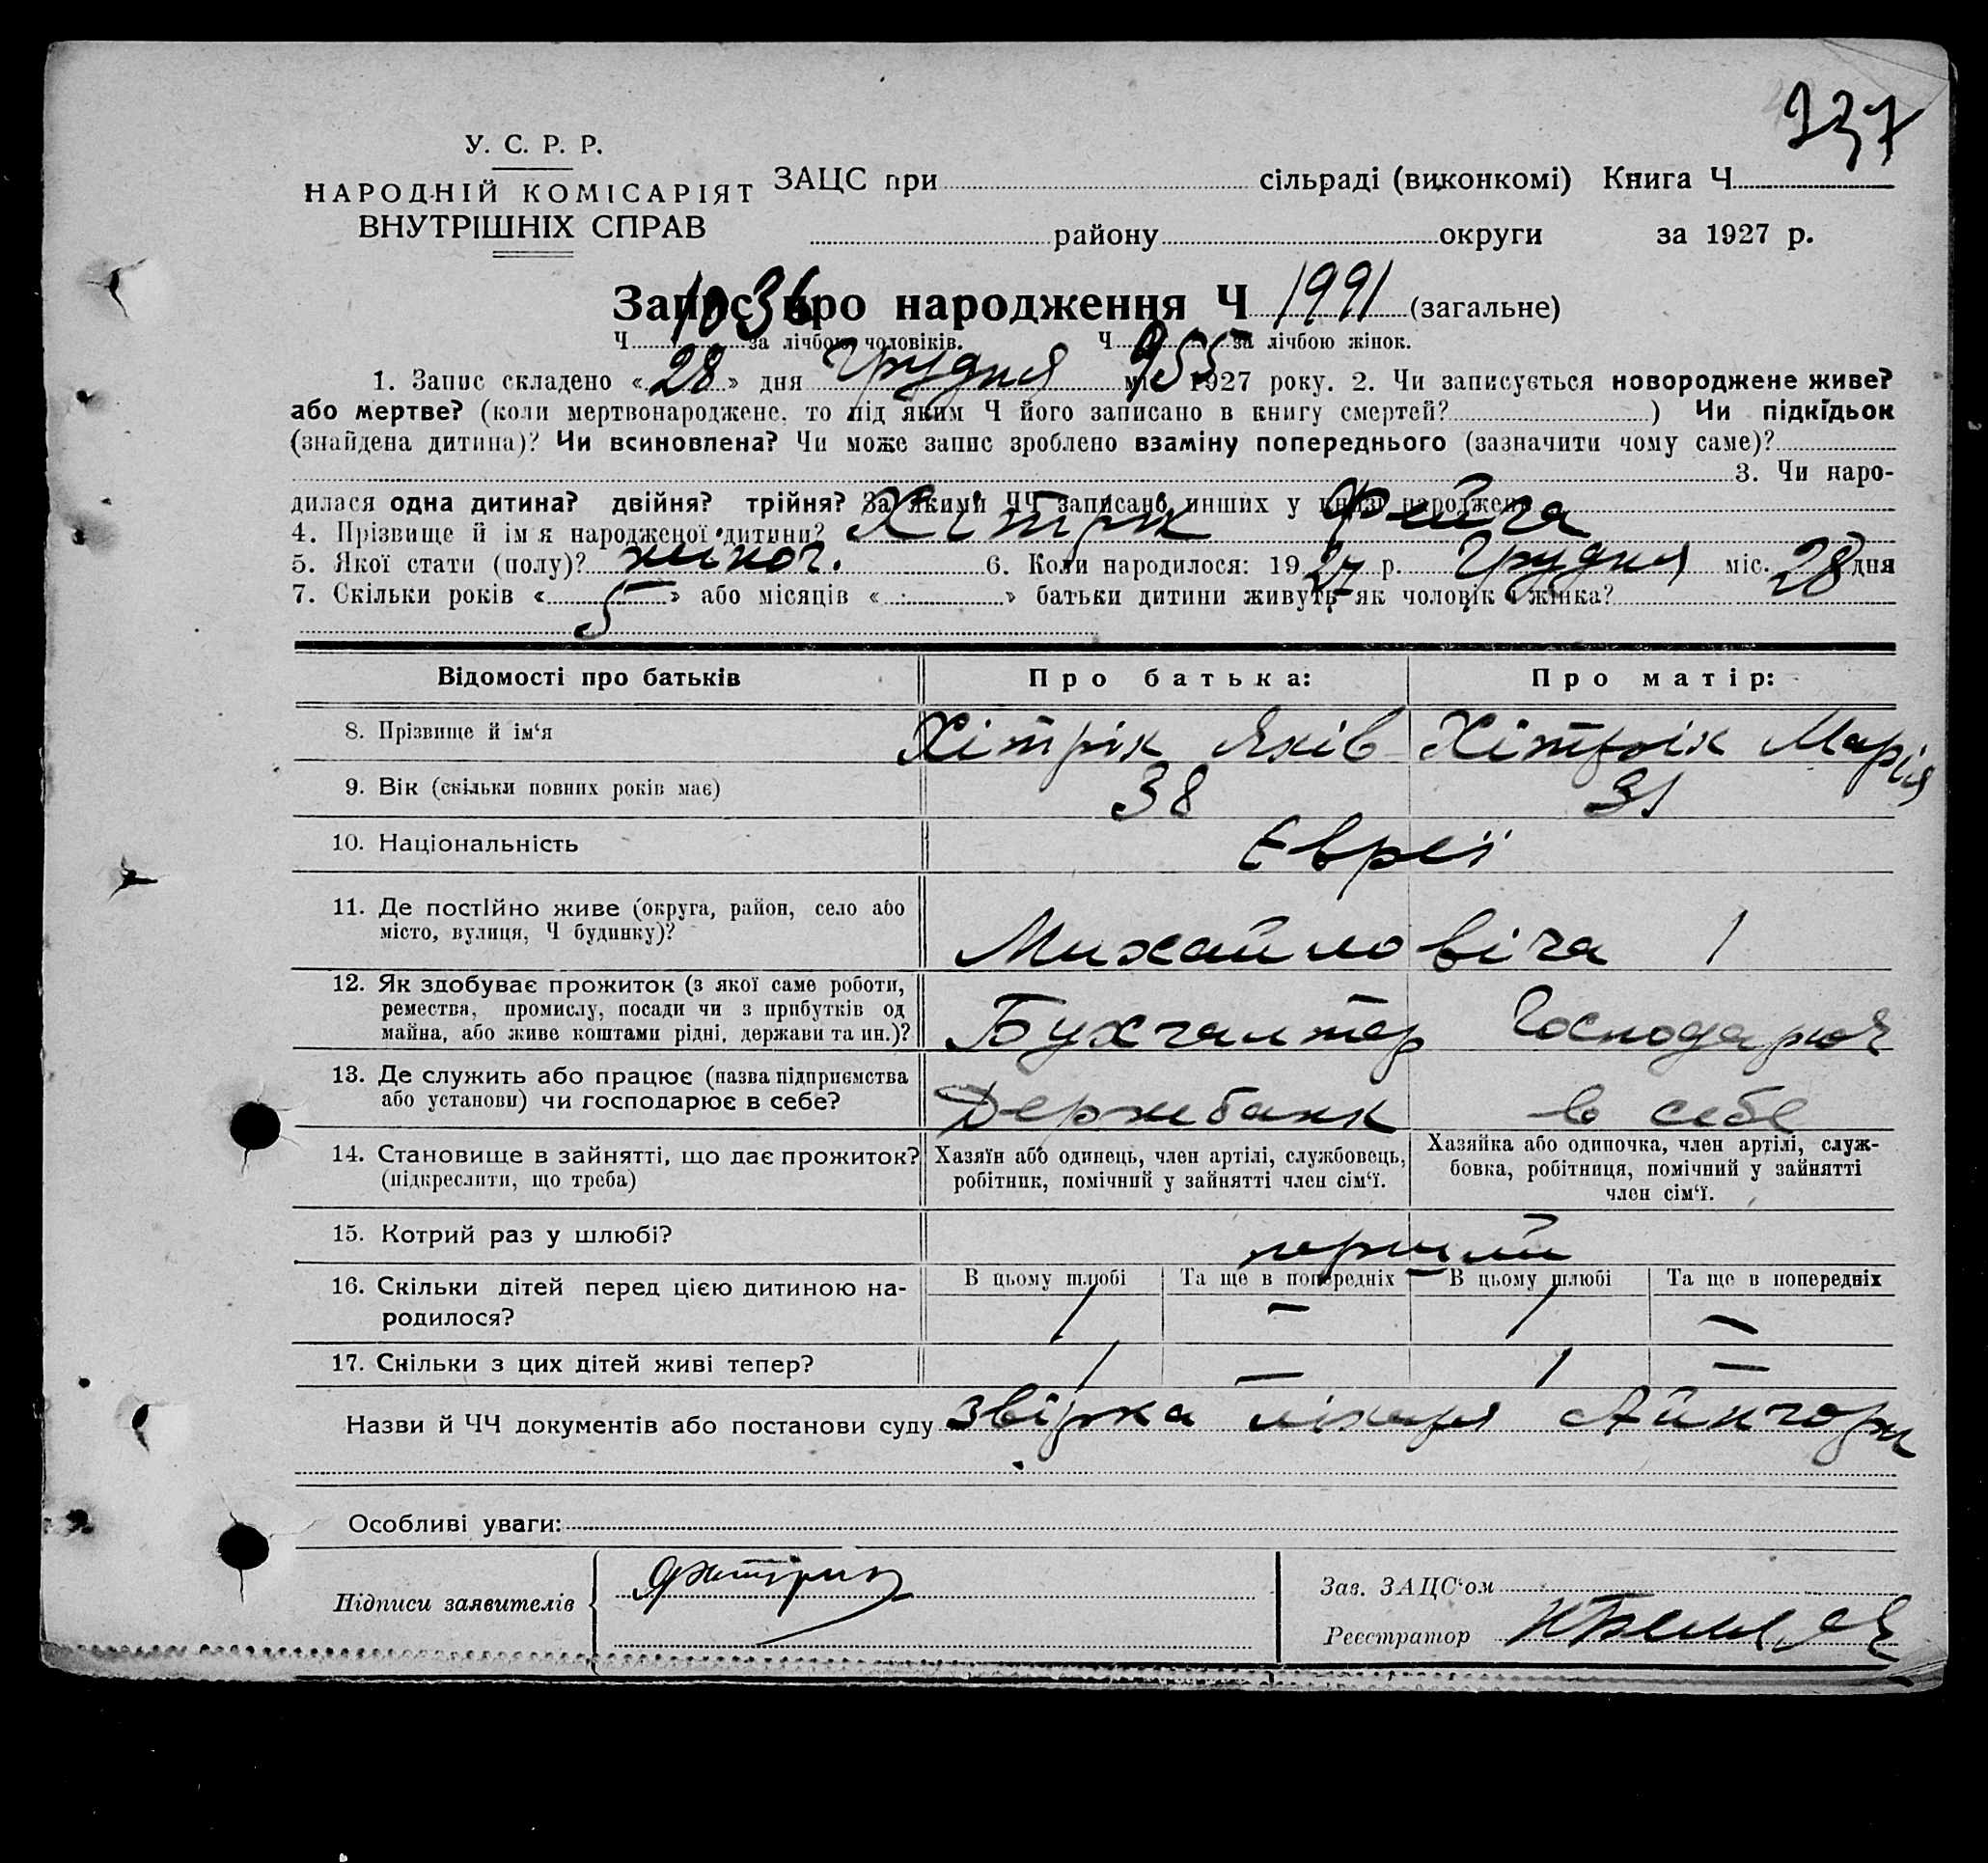 237
У. С. Р. Р.
НАРОДНІЙ КОМІСАРІЯТ
ВНУТРІШНІХ СПРАВ
ЗАЦС при сільраді (виконкомі) Книга Ч
району округи за 1927 р.
Запис про народження Ч 1991 (загальне)
Ч 1036 за лічбою чоловіків. Ч 955 за лічбою жінок.
1. Запис складено «28» дня Грудня міс. 1927 року. 2. Чи записується новороджене живе?
або мертве? (коли мертвонароджене, то під яким Ч його записано в книгу смертей? ) Чи підкідьок
(знайдена дитина)? Чи всиновлена? Чи може запис зроблено взаміну попереднього (зазначити чому саме)?
3. Чи наро-
дилася одна дитина? двійня? трійня? За якими ЧЧ записано инших у книзі народжень
4. Прізвище й ім'я народженої дитини? Хітрік Фейга
5. Якої стати (полу)? жіноч. 6. Коли народилося: 1927 р. Грудня міс. 28 дня
7. Скільки років «5» або місяців « » батьки дитини живуть як чоловік і жінка?
Відомості про батьків Про батька: Про матір:
8. Прізвище й ім‘я Хітрік Яків Хітрік Марія
9. Вік (скільки повних років має) 38 31
10. Національність Євреї
11. Де постійно живе (округа, район, село або
місто, вулиця, Ч будинку)? Михайловіча 1
12. Як здобуває прожиток (з якої саме роботи,
ремества, промислу, посади чи з прибутків од
майна, або живе коштами рідні, держави та ин.)? Бухгалтер Господарює
13. Де служить або працює (назва підприємства
або установи) чи господарює в себе? Держбанк в себе
14. Становище в зайнятті, що дає прожиток?
(підкреслити, що треба)
Хазяїн або одинець, член артілі, службовець,
робітник, помічний у зайнятті член сім‘ї.
Хазяйка або одиночка, член артілі, служ-
бовка, робітниця, помічний у зайнятті
член сім‘ї.
15. Котрий раз у шлюбі? перший
16. Скільки дітей перед цією дитиною на-
родилося?
В цьому шлюбі Та ще в попередніх В цьому шлюбі Та ще в попередніх
1 — 1 —
17. Скільки з цих дітей живі тепер? 1 — 1 —
Назви й ЧЧ документів або постанови суду звірка лікаря
Особливі уваги:
Підписи заявителів
Зав. ЗАЦС‘ом
Реєстратор